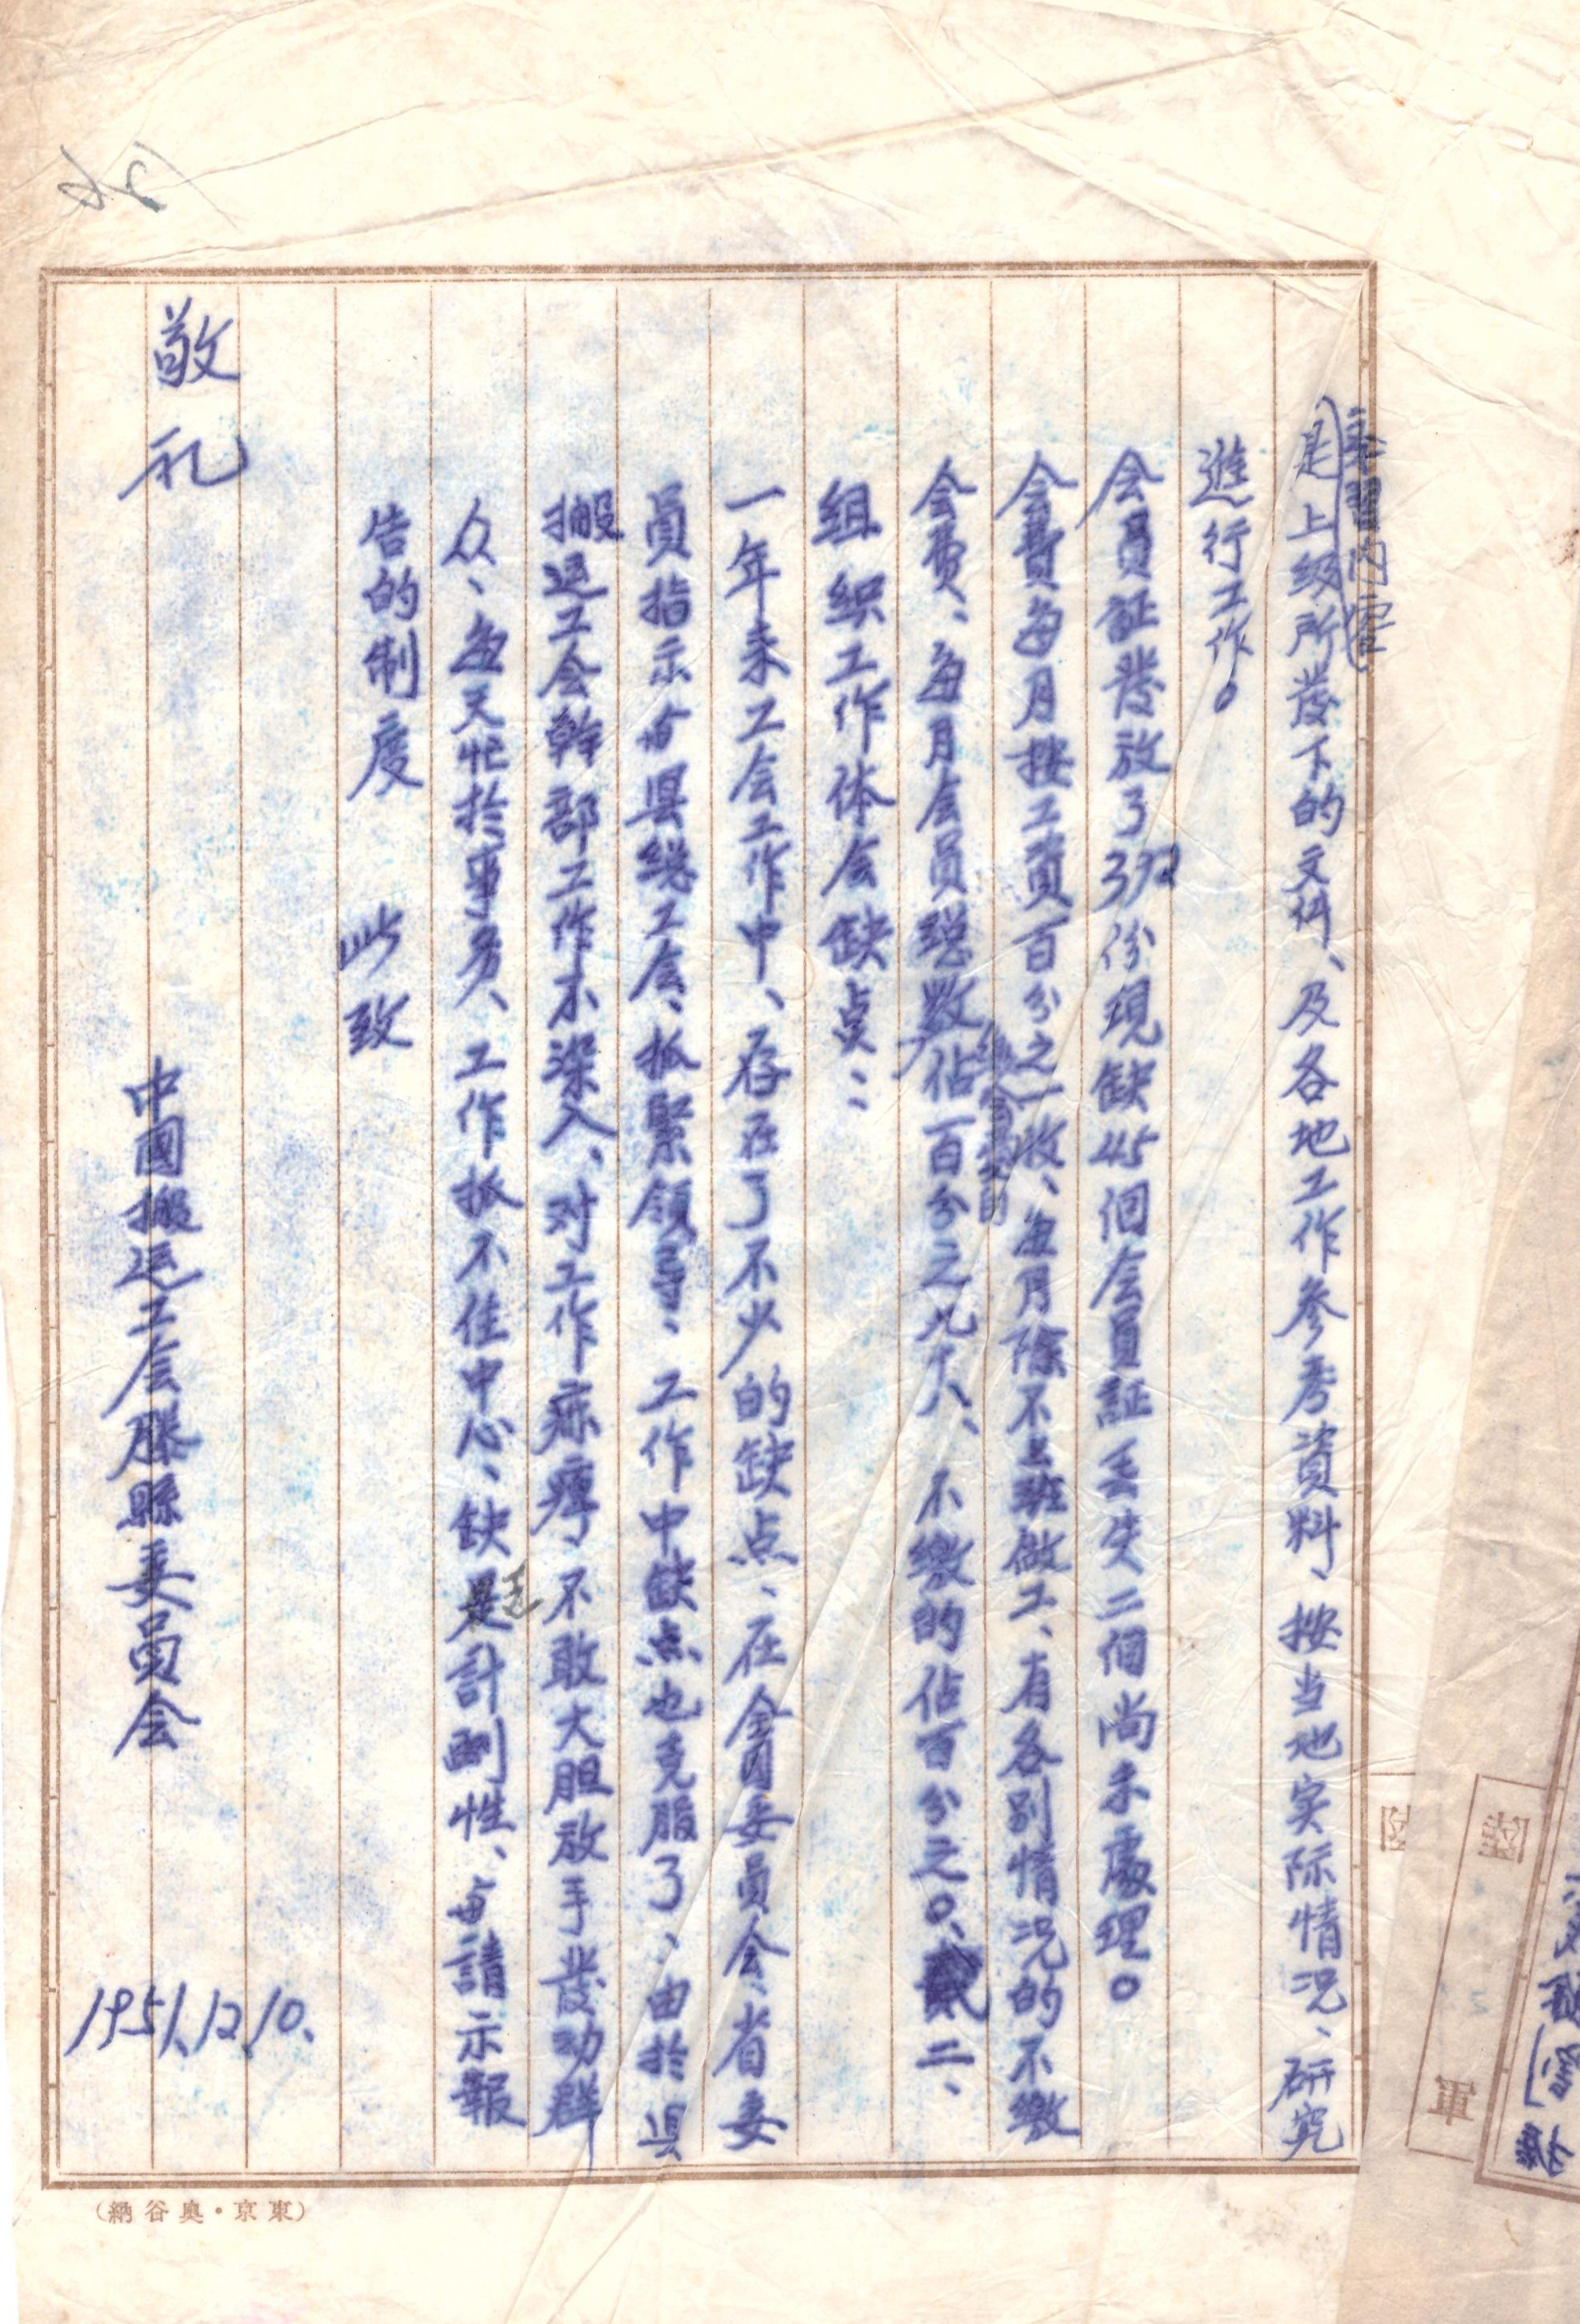 学習内容
是上级所發下的文件、及各地工作参考資料 按当地实际情况、研究
進行工作。
会員証發放了392份現缺45個会員証丢失二個尚未處理。
会費每月按工資百分之一收、每月除不上班做工、有各别情况的不缴
会费、每月会员總數佔百分之九十八、不缴的佔百分之0、二、
组织工作体会缺点：
一年来工会工作中、存在了不少的缺点、在会員委員会、省委
員指示与県總工会、抓緊領导、工作中缺点也克服了、由於県
搬运工会幹部工作不深入、对工作麻痺 不敢大胆放手發动群
众、每天忙於事务、工作抓不住中心、缺乏計劃性、与請示報
告的制度 此致
敬礼
中國搬运工会滕縣委員会
1951.12.10.
（東京・奥谷納）
陸
軍